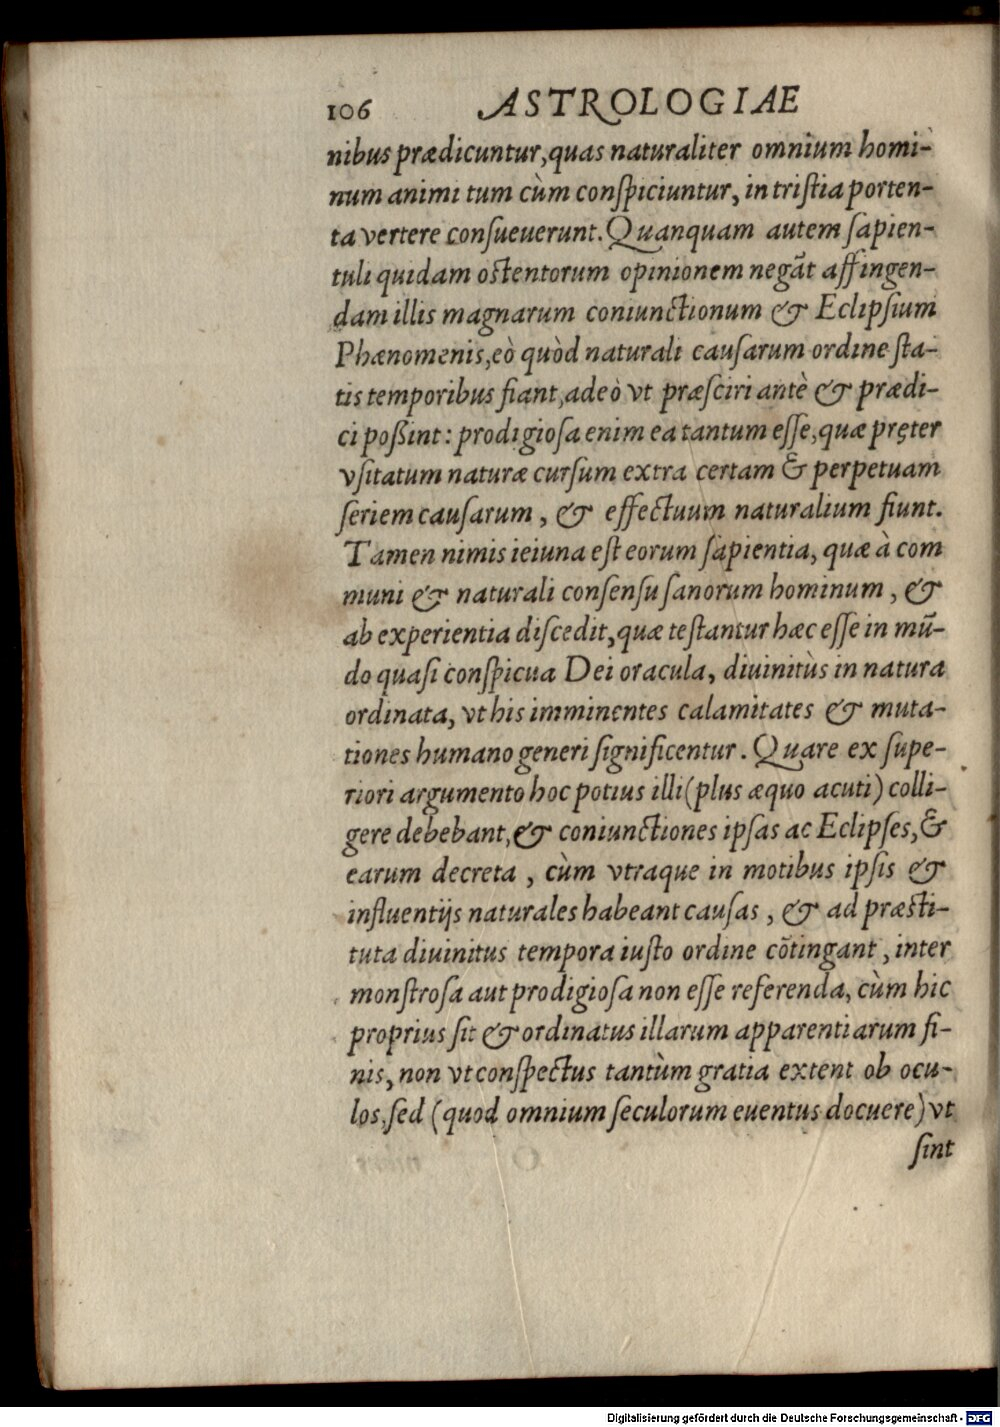 106 ASTROLOGIAE
nibus prædicuntur, quas naturaliter omnium homi-
num animi tum cùm conſpiciuntur, in triſtia porten-
ta vertere conſueuerunt. Quanquam autem ſapien-
tuli quidam oſtentorum opinionem negãt affingen-
dam illis magnarum coniunctionum & Eclipſium
Phænomenis, eò quòd naturali cauſarum ordine ſta-
tis temporibus fiant, adeò vt præſciri antè & prædi-
ci poßint: prodigioſa enim ea tantum eſſe, quæ pręter
vſitatum naturæ curſum extra certam & perpetuam
ſeriem cauſarum, & effectuum naturalium fiunt.
Tamen nimis ieiuna eſt eorum ſapientia, quæ à com
muni & naturali conſenſu ſanorum hominum, &
ab experientia diſcedit, quæ teſtantur hæc eſſe in mũ-
do quaſi conſpicua Dei oracula, diuinitùs in natura
ordinata, vt his imminentes calamitates & muta-
tiones humano generi ſignificentur. Quare ex ſupe-
riori argumento hoc potius illi (plus æquo acuti) colli-
gere debebant, & coniunctiones ipſas ac Eclipſes, &
earum decreta, cùm vtraque in motibus ipſis &
influentijs naturales habeant cauſas, & ad præſti-
tuta diuinitus tempora iuſto ordine cõtingant, inter
monſtroſa aut prodigioſa non eſſe referenda, cùm hic
proprius ſit & ordinatus illarum apparentiarum fi-
nis, non vt conſpectus tantùm gratia extent ob ocu-
los, ſed (quod omnium ſeculorum euentus docuere) vt
ſint
Digitalisierung gefördert durch die Deutsche Forschungsgemeinschaft - DFG